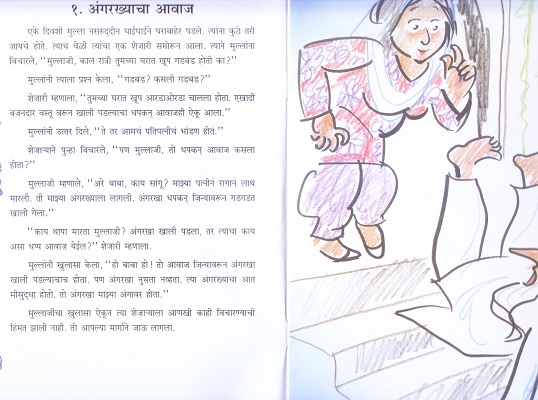 १. अंगरख्याचा आवाज
एके दिवशी मुल्ला नसरुद्दीन घाईघाईने घराबाहेर पडले. त्यांना कुठे तरी
जायचे होते. त्याच वेळी त्यांचा एक शेजारी समोरून आला. त्याने मुल्लांना
विचारले, “मुल्लाजी, काल रात्री तुमच्या घरात खूप गडबड होती का?”
मुल्लांनी त्याला प्रश्न केला, “गडबड? कसली गडबड?”
शेजारी म्हणाला, “तुमच्या घरात खूप आरडाओरडा चालला होता. एखादी
वजनदार वस्तू वरून खाली पडल्याचा धपकन् आवाजही ऐकू आला.”
मुल्लांनी उत्तर दिले, “ते तर आमचं पतिपत्नीचं भांडण होतं.”
शेजाऱ्याने पुन्हा विचारले, “पण मुल्लाजी, तो धपकन् आवाज कसला
होता?”
मुल्लाजी म्हणाले, “अरे बाबा, काय सांगू? माझ्या पत्नीनं रागानं लाथ
मारली. ती माझ्या अंगरख्याला लागली. अंगरखा धपकन् जिन्यावरून गडगडत
खाली गेला.”
“काय थापा मारता मुल्लाजी? अंगरखा खाली पडला, तर त्याचा काय
असा धप्प आवाज येईल?” शेजारी म्हणाला.
मुल्लांनी खुलासा केला, “हो बाबा हो! तो आवाज जिन्यावरून अंगरखा
खाली पडल्याचाच होता. पण अंगरखा नुसता नव्हता. त्या अंगरख्याच्या आत
मीसुद्धा होतो. तो अंगरखा माझ्या अंगावर होता.”
मुल्लाजींचा खुलासा ऐकून त्या शेजाऱ्याला आणखी काही विचारण्याची
हिंमत झाली नाही. तो आपल्या मार्गाने जाऊ लागला.